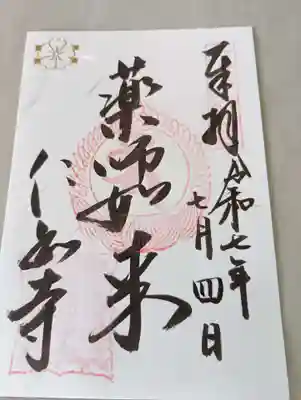 奉拝 令和七年
七月四日
薬師如来
仁和寺